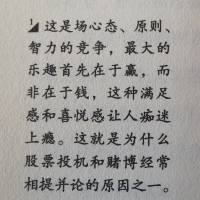 1 这是场心态、原则、
智力的竞争，最大的
乐趣首先在于赢，而
非在于钱，这种满足
感和喜悦感让人痴迷
上瘾。这就是为什么
股票投机和赌博经常
相提并论的原因之一。